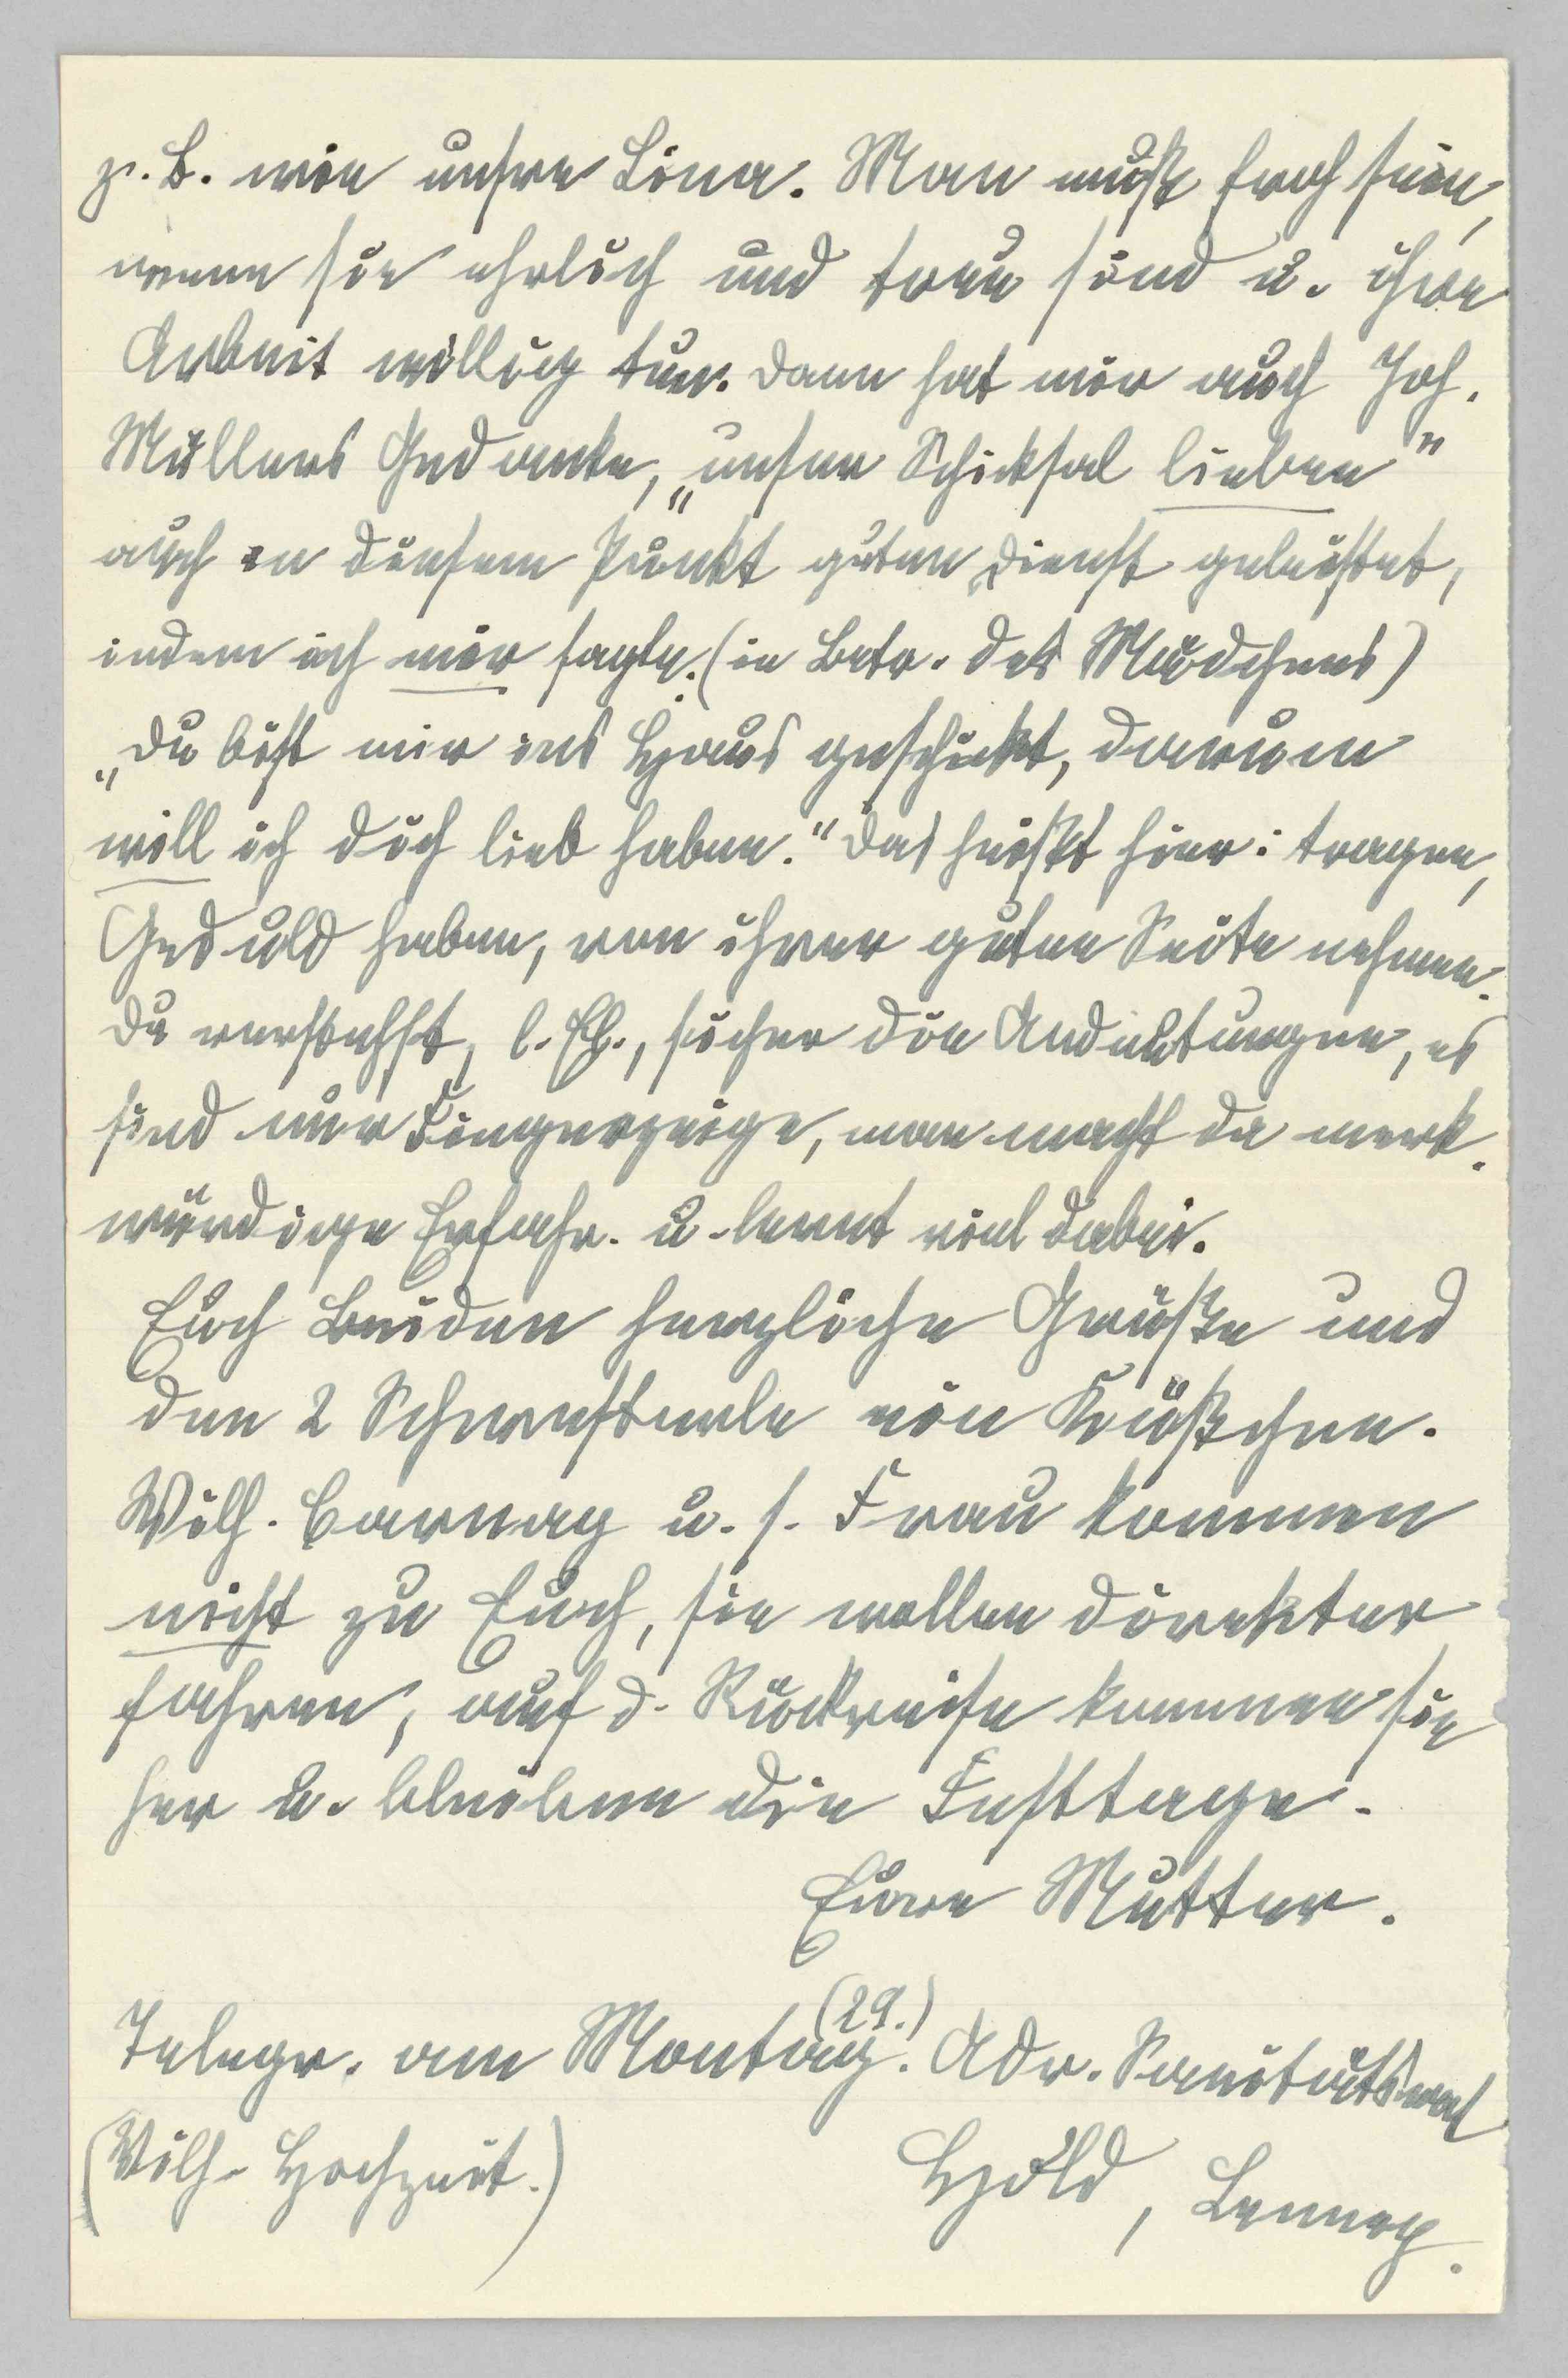 z. B. wie unsre Lina. Man muß froh sein,
wenn sie ehrlich und treu sind u. ihre
Arbeit willig tun. Dann hat mir auch Joh.
Müllers Gedanke, „unser Schicksal lieben"
auch in diesem Punkt guten Dienst geleistet,
indem ich mir sagte: (in Betr. des Mädchens)
„Du bist mir ins Haus geschickt, darum
will ich dich lieb haben." Das heißt hier: tragen,
Geduld haben, von ihrer guten Seite nehmen.
Du verstehst, l. El., sicher die Andeutungen, es
sind nur Fingerzeige, man macht da merk-
würdige Erfahr. u. lernt viel dabei.
Euch Beiden herzliche Grüße und
den 2 Schwesterle ein Küßchen.
Wilh. Carnap u. s. Frau kommen
nicht zu Euch, sie wollen direkter
fahren, auf d. Rückreise kommen sie
her u. bleiben die Festtage.
Eure Mutter.
Telegr. am Montag. (29.) Adr. Sanitätsrat
(Wilh. Hochzeit.) Hild, Lennep.